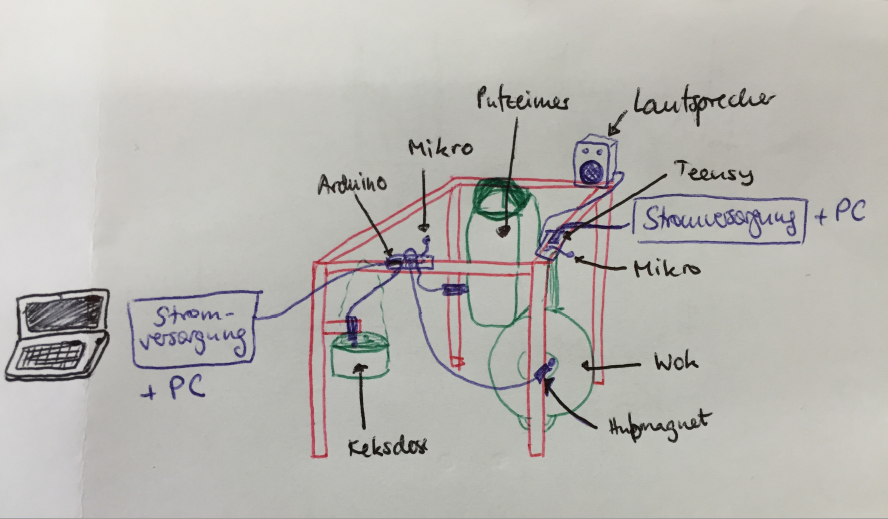 Putzeimer
Lautsprecher
Mikro
Arduino
Teensy
Stromversorgung + PC
Mikro
Strom-
versorgung
+ PC
Wok
Hubmagnet
Keksdose